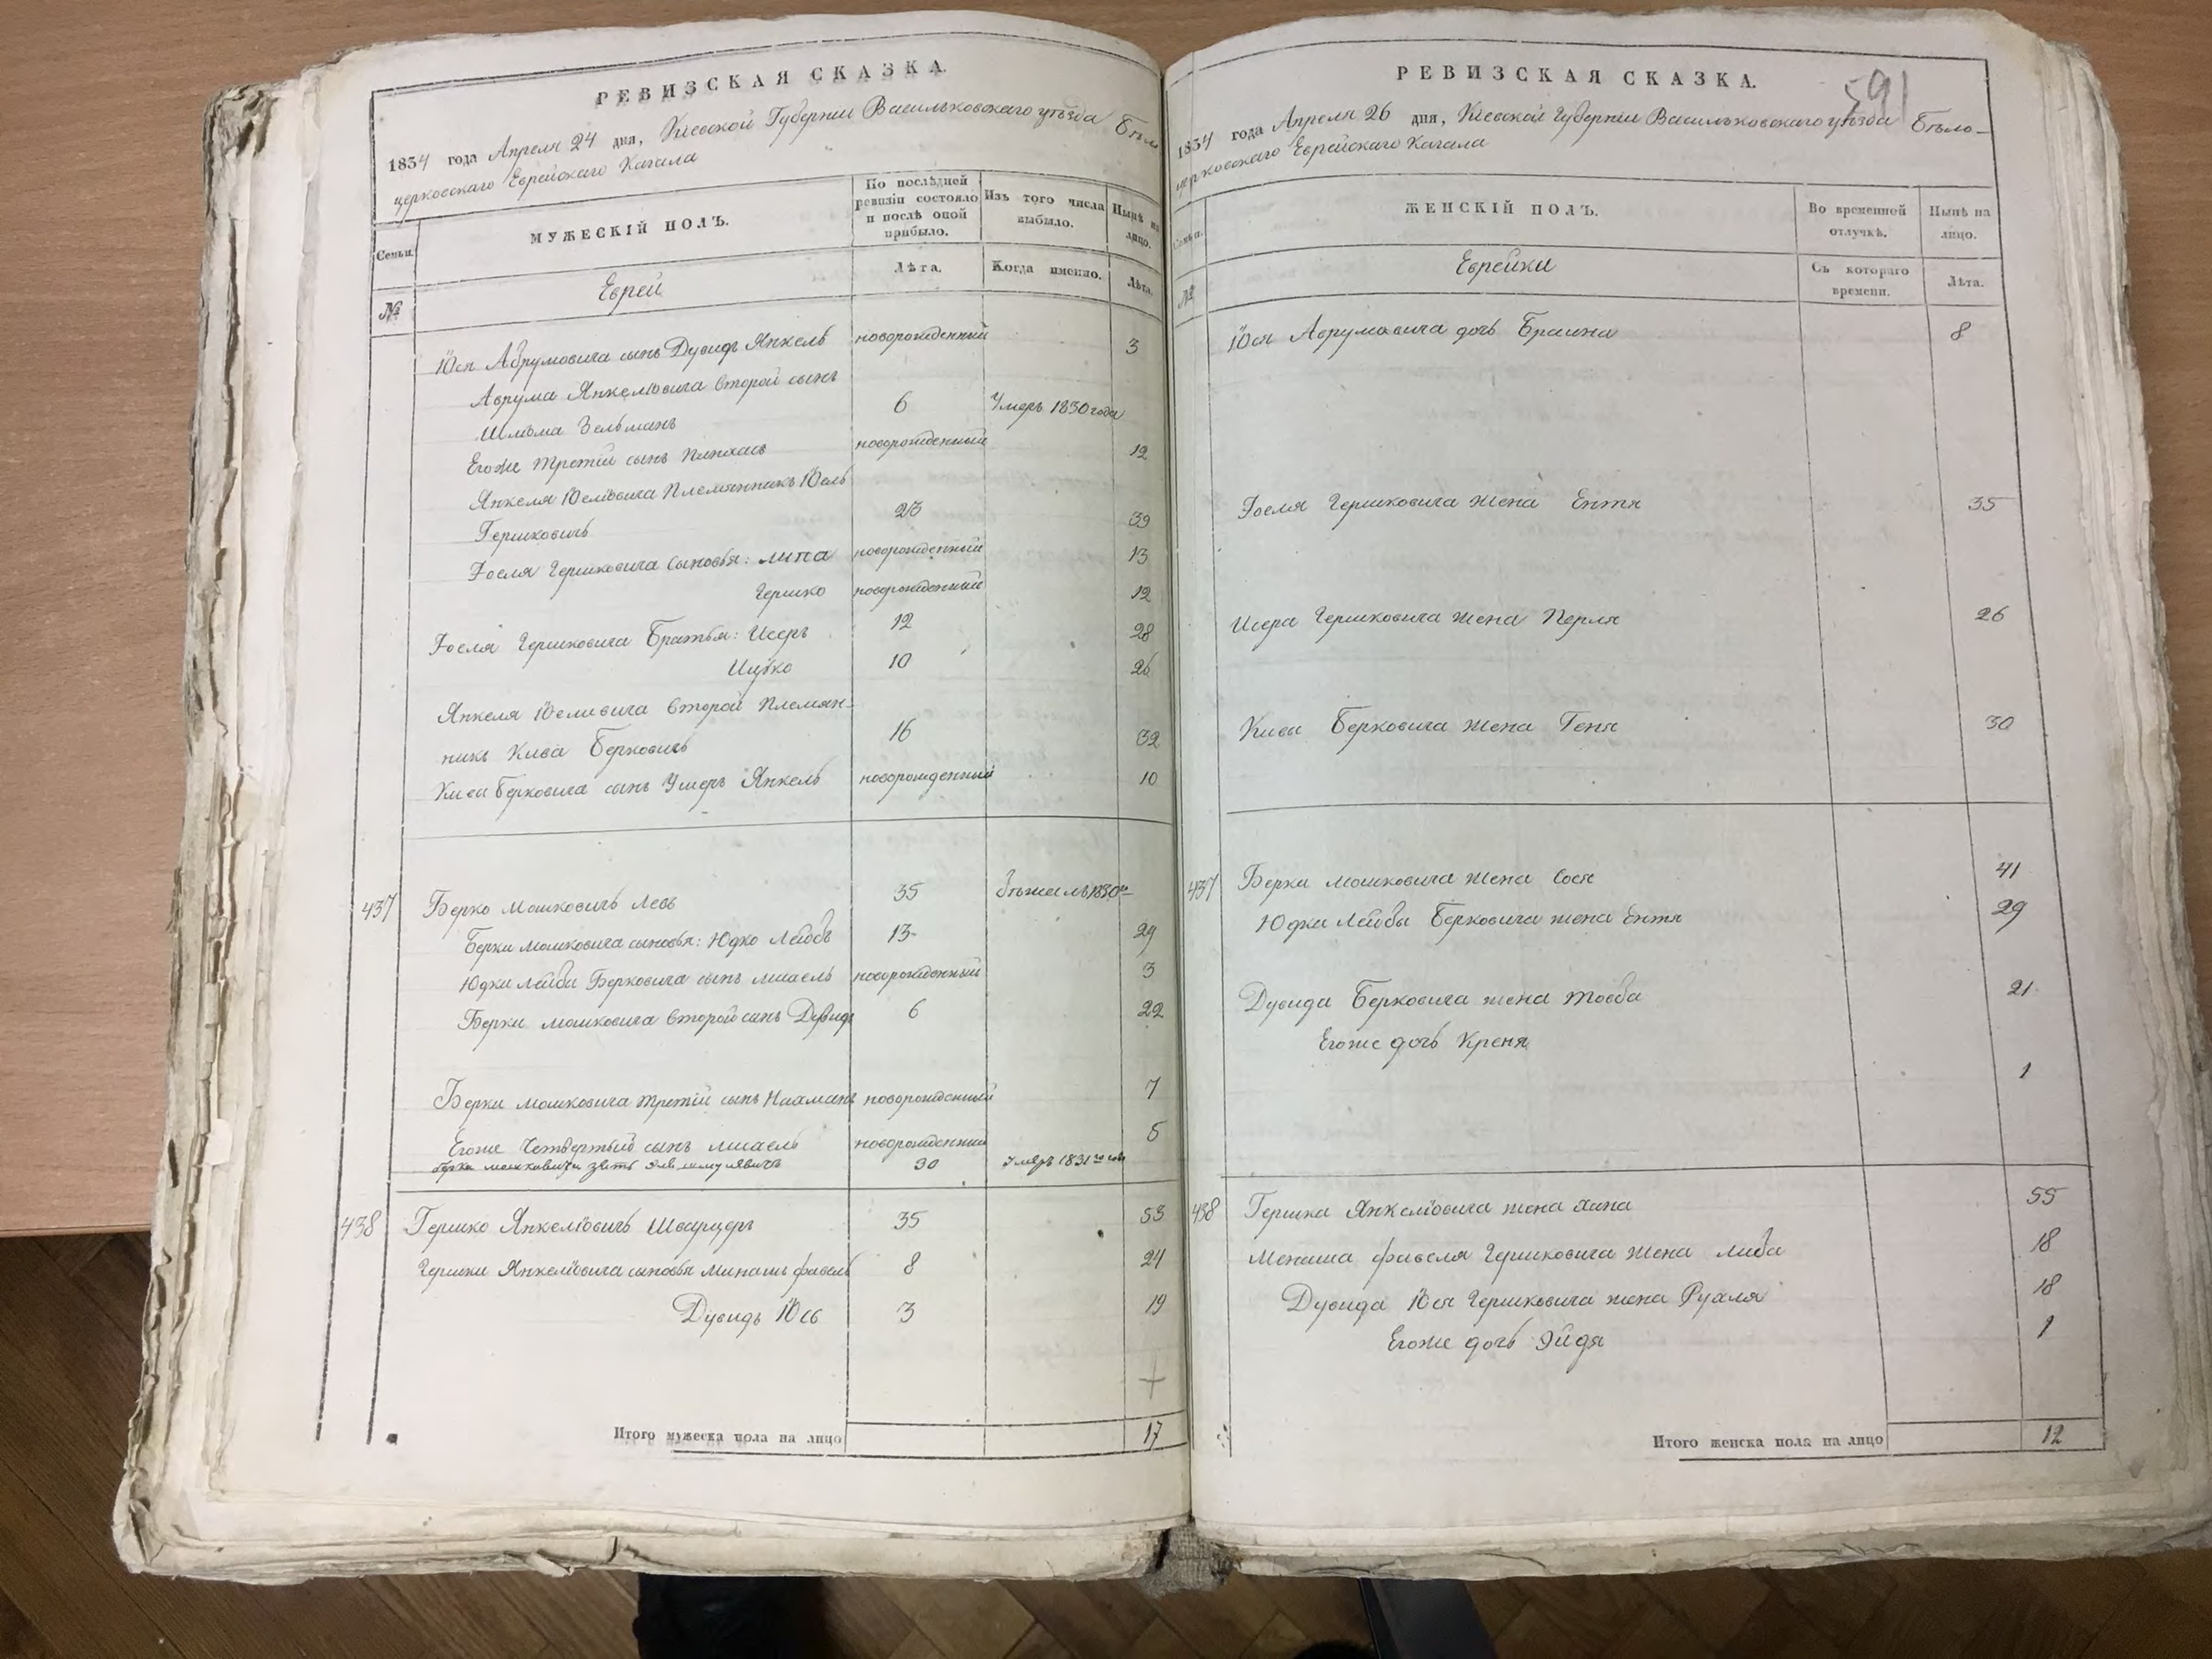 РЕВИЗСКАЯ СКАЗКА.
1834 года Апреля 24 дня, Кіевской Губерніи Васильковскаго уѣзда Бѣло
церковскаго Еврейскаго Кагала
Семьи.
МУЖЕСКІЙ ПОЛЪ.
По послѣдней ревизіи состояло и послѣ оной прибыло.
Изъ того числа выбыло.
Нынѣ на лицо.
№
Еврей
Лѣта.
Когда именно.
Лѣта.
Юся Абрумовича сынъ Дувидъ Янкель новорожденный 3
Аврума Янкелiовича второй сынъ
Шлiома Зельманъ 6 Умеръ 1830 года
Егоже третій сынъ Пинхасъ новорожденный 12
Янкеля Юселiовича Племянникъ Юсь
Гершковичъ 23 39
Іоселя Гершковича сыновья: Липа новорожденный 13
Гершко новорожденный 12
Іоселя Гершковича Братья: Исеръ 12 28
Ицко 10 26
Янкеля Юселиовича второй Племян-
никъ Кива Берковичъ 16 32
Кивы Берковича сынъ Ушеръ Янкель новорожденный 10
437 Берко Мошковичъ Левъ 35 Бѣжалъ 1830
Берки Мошковича сыновья: Юдко Лейбъ 13 29
Юдки Лейби Берковича сынъ Мисаель новорожденный 3
Берки Мошковича второй сынъ Дувидъ 6 22
Берки Мошковича третій сынъ Нахманъ новорожденный 7
Егоже Четвертый сынъ Мисаель новорожденный 5
Берка Мошковича зять 30 Умеръ 1831 го года
438 Гершко Янкелiовичъ Шварцеръ 35 53
Гершки Янкелiовича сыновья Минашъ Фавель 8 24
Дувидъ Юсь 3 19
Итого мужеска пола на лицо 17
591
РЕВИЗСКАЯ СКАЗКА.
1834 года Апреля 26 дня, Кіевской Губерніи Васильковскаго уѣзда Бѣло-
церковскаго Еврейскаго Кагала
Семьи.
ЖЕНСКІЙ ПОЛЪ.
Во временной отлучкѣ.
Нынѣ на лицо.
№
Еврейки
Съ котораго времени.
Лѣта.
Юся Аврумовича дочь Браина 8
Іоселя Гершковича жена Ентя 35
Исера Гершковича жена Перля 26
Кивы Берковича жена Геня 30
437 Берки Мошковича жена Сося 41
Юдки Лейбы Берковича жена Ентя 29
Дувида Берковича жена Товба 21
Егоже дочь Креня 1
438 Гершка Янкелiовича жена Хана 55
Менаша Фавеля Гершковича жена Либа 18
Дувида Юся Гершковича жена Рухля 18
Егоже дочь Эйдя 1
Итого женска пола на лицо 12